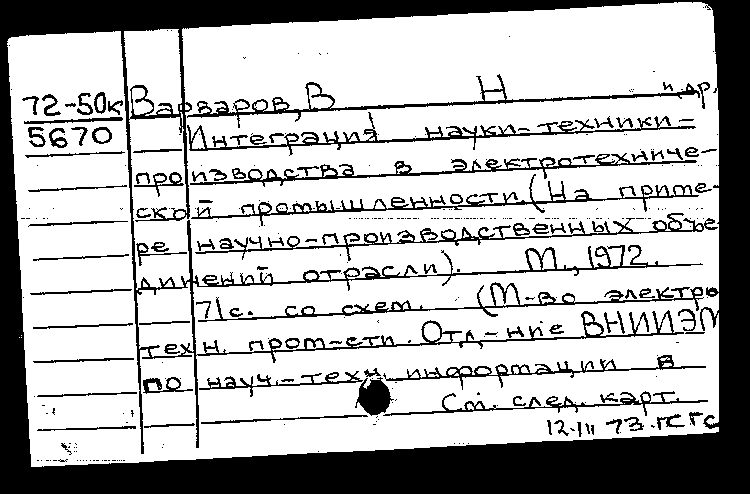 72-50к Варваров, В Н и др.
5670 Интеграция науки-техники-
производства в электротехниче-
ской промышленности. (На приме-
ре научно-производственных объе
динений отрасли). М., 1972.
71с. со схем. (М-во электро
техн. пром-сти. Отд-ние ВНИИЭМ
по науч.-техн. информации в
См. след. карт.
12.III 73. ГС ГС